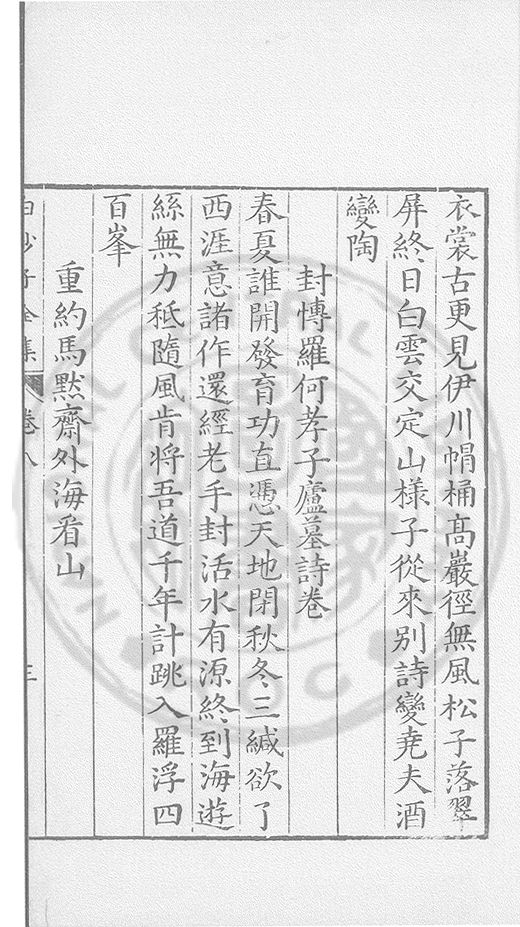 衣裳古更見伊川帽桶高巖徑無風松子落翠
屏終日白雲交定山樣子從來别詩變堯夫酒
變陶
封慱羅何孝子廬墓詩卷
春夏誰開發育功直憑天地閉秋冬三緘欲了
西涯意諸作還經老手封活水有源終到海遊
絲無力秪隨風肯將吾道千年計跳入羅浮四
百峯
重約馬默齋外海看山
白沙子全集 卷八 三